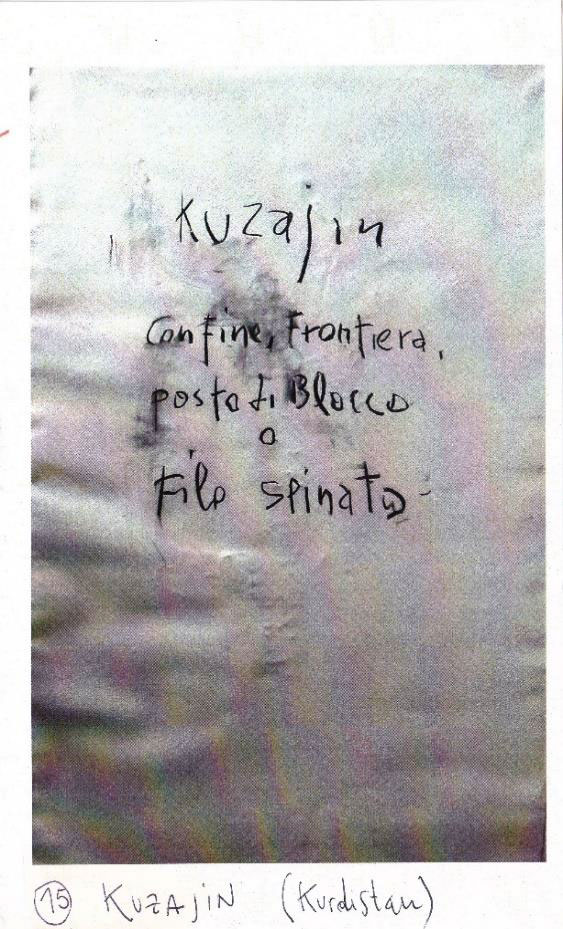 Kuzajin
Confine, Frontiera,
posto di Blocco
o
Filo spinato
15 KUZAJIN (Kurdistan)